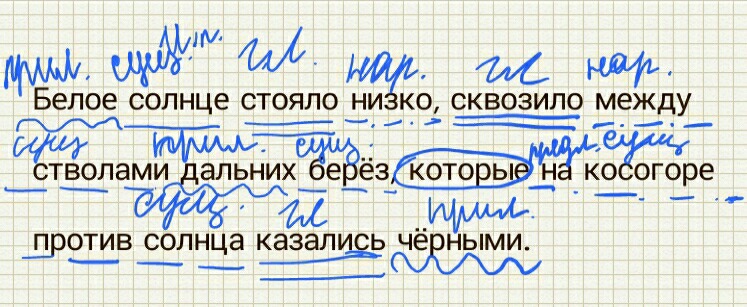 прил. сущ. И.п. гл. нар. гл нар.
Белое солнце стояло низко, сквозило между
сущ прил. сущ. предл. сущ
стволами дальних берёз, которые на косогоре
сущ. гл прил.
против солнца казались чёрными.